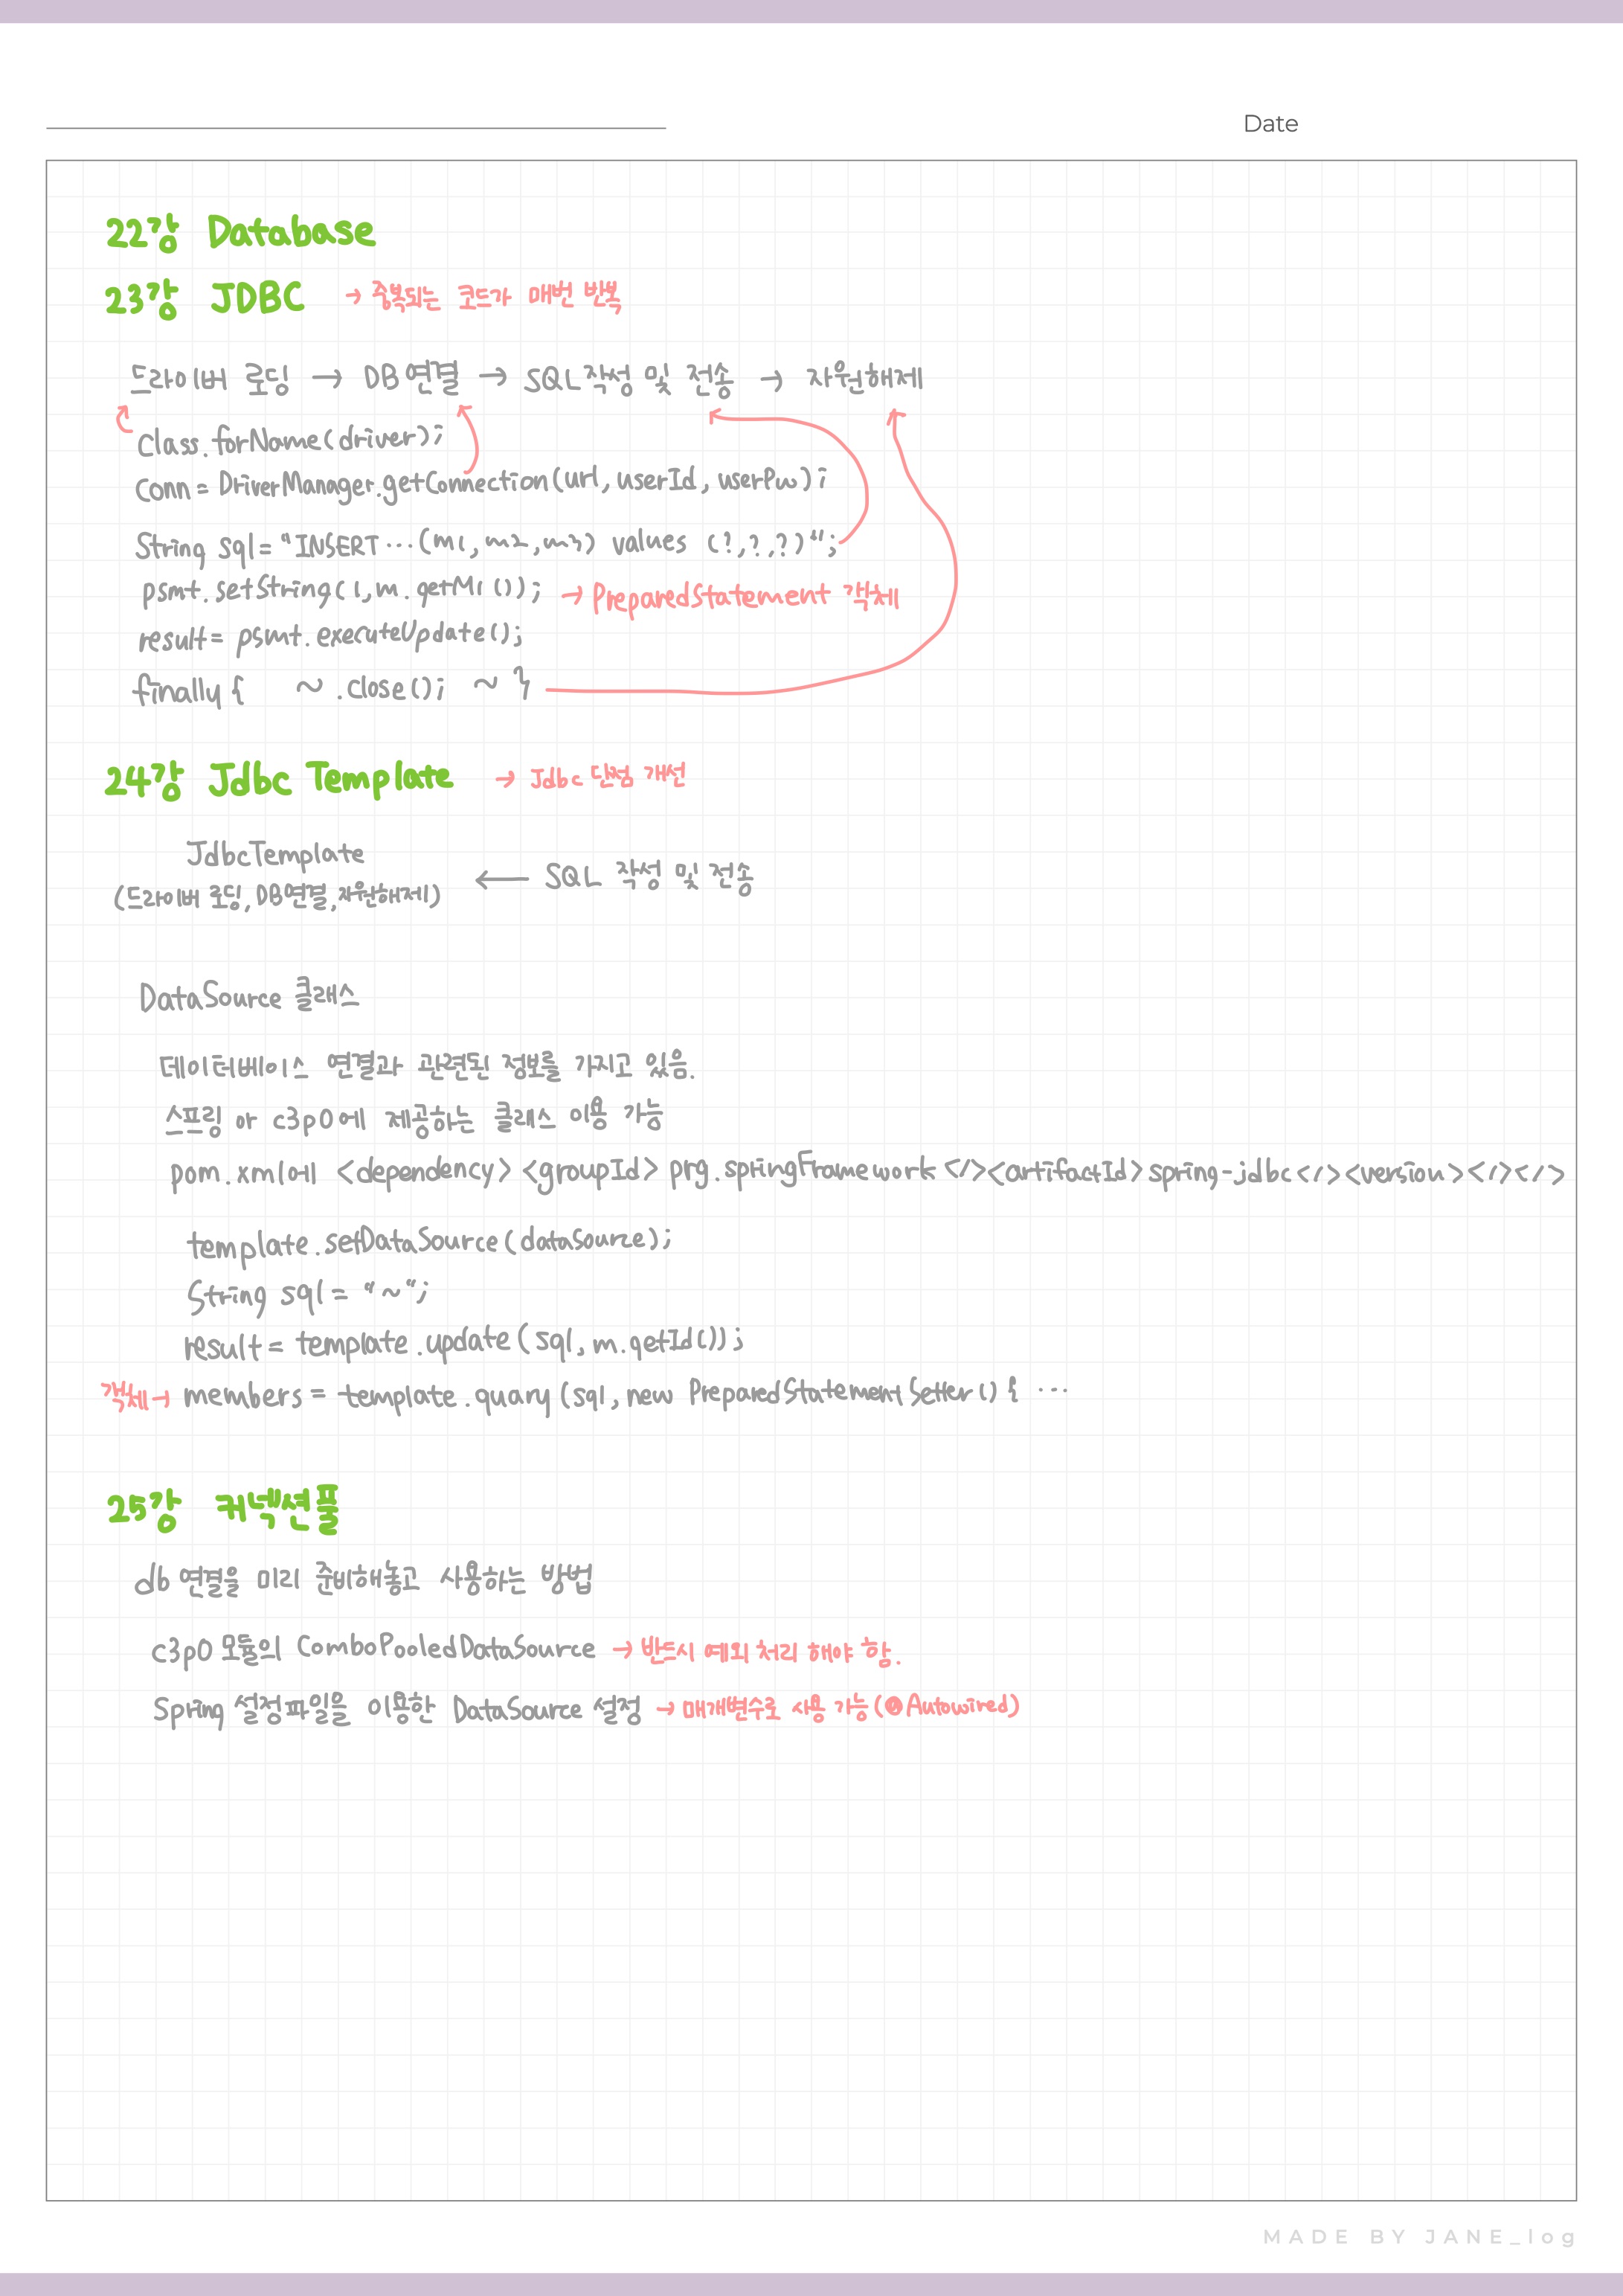 Date
22강 Database
23강 JDBC → 중복되는 코드가 매번 반복
드라이버 로딩 → DB연결 → SQL작성 및 전송 → 자원해제
Class.forName(driver);
Conn = DriverManager.getConnection(url, userId, userPw);
String sql = "INSERT ... (m1, m2, m3) values (?,?,?)";
psmt.setString(1, m.getM1()); → PreparedStatement 객체
result = psmt.executeUpdate();
finally { ~ .close(); ~ }
24강 Jdbc Template → Jdbc 단점 개선
JdbcTemplate
(드라이버 로딩, DB연결, 자원해제) ← SQL 작성 및 전송
DataSource 클래스
데이터베이스 연결과 관련된 정보를 가지고 있음.
스프링 or c3p0에 제공하는 클래스 이용 가능
pom.xml에 <dependency> <groupId> prg.springFramework </><artifactId> spring-jdbc </><version></></>
template.setDataSource(dataSource);
String sql = "~";
result = template.update(sql, m.getId());
객체→ members = template.quary(sql, new PreparedStatementSetter() { ...
25강 커넥션풀
db 연결을 미리 준비해놓고 사용하는 방법
c3p0 모듈의 ComboPooledDataSource → 반드시 예외 처리 해야 함.
Spring 설정파일을 이용한 DataSource 설정 → 매개변수로 사용 가능(@Autowired)
MADE BY JANE_log